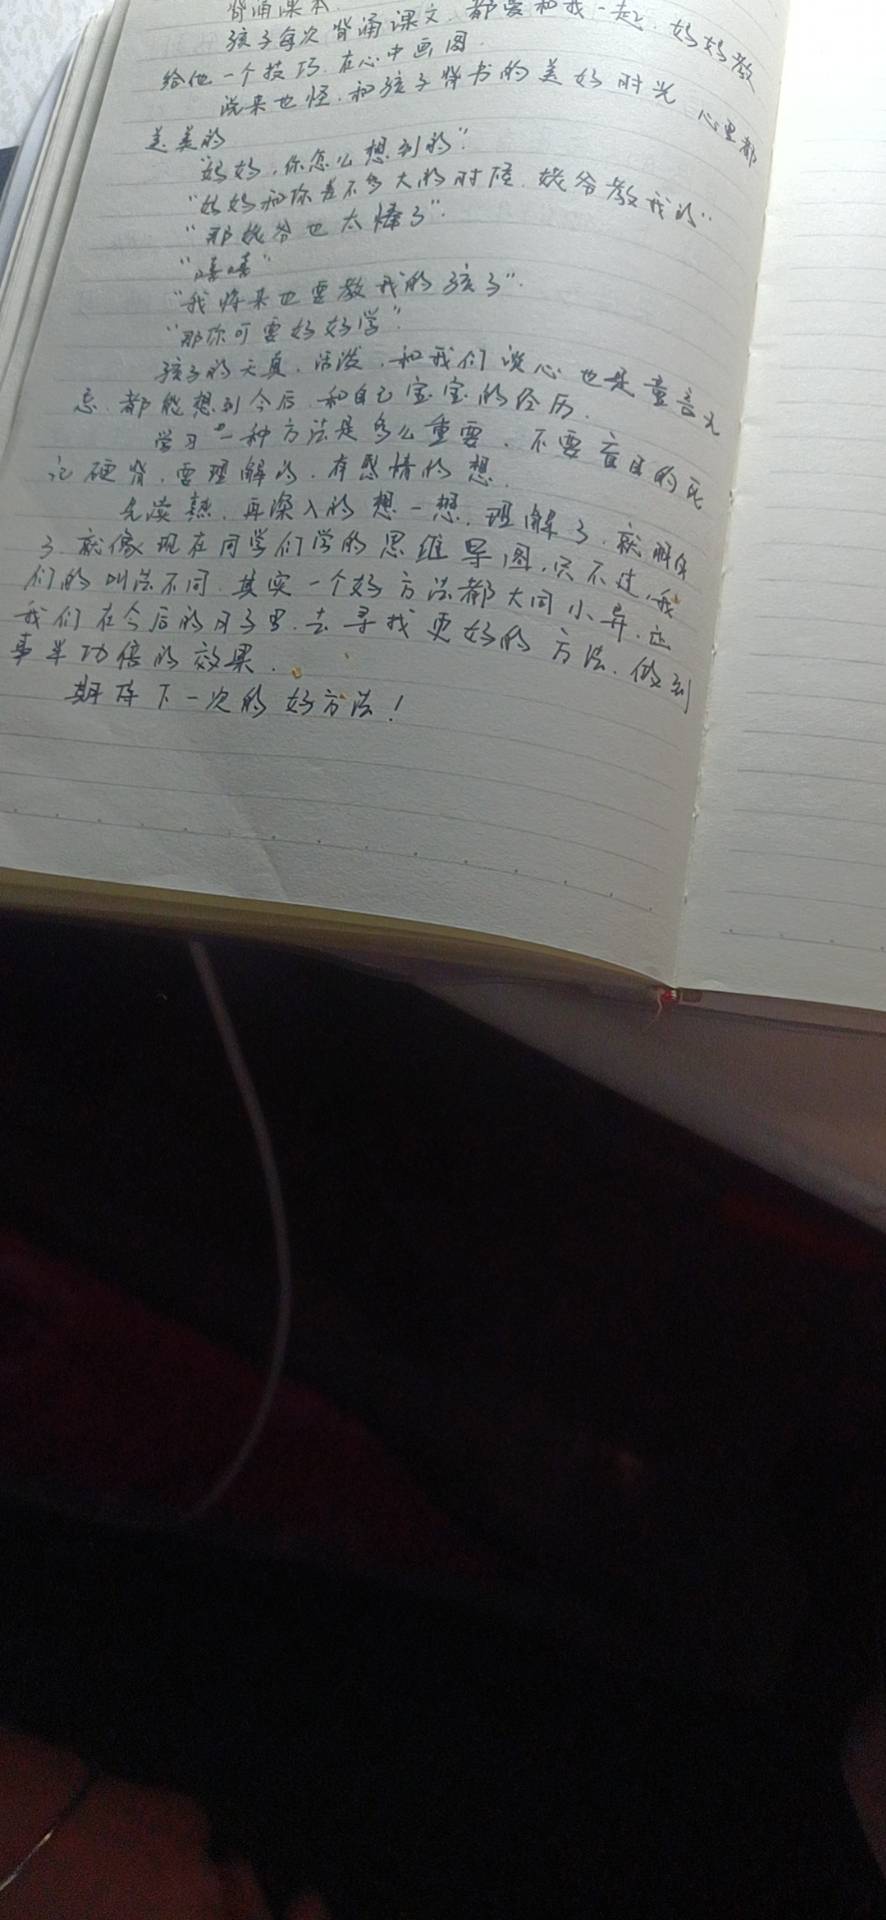 背诵课本.
孩子每次背诵课文,都要和我一起.妈妈教
给他一个技巧.在心中画图.
说来也怪.和孩子背书的美好时光 心里都
美美的
"妈妈,你怎么想到的".
"妈妈和你差不多大的时候.姥爷教我的"
"那姥爷也太棒了".
"嘻嘻"
"我将来也要教我的孩子".
"那你可要好好学".
孩子的天真、活泼,和我们谈心也是童言无
忌.都能想到今后.和自己宝宝的经历.
学习一种方法是多么重要、不要盲目的死
记硬背.要理解的,有感情的想.
先读熟.再深入的想一想.理解了.就
了.就像现在同学们学的思维导图.只不过,我
们的叫法不同.其实一个好方法都大同小异.
我们在今后的日子里.去寻找更好的方法.做到
事半功倍的效果.
期待下一次的好方法!